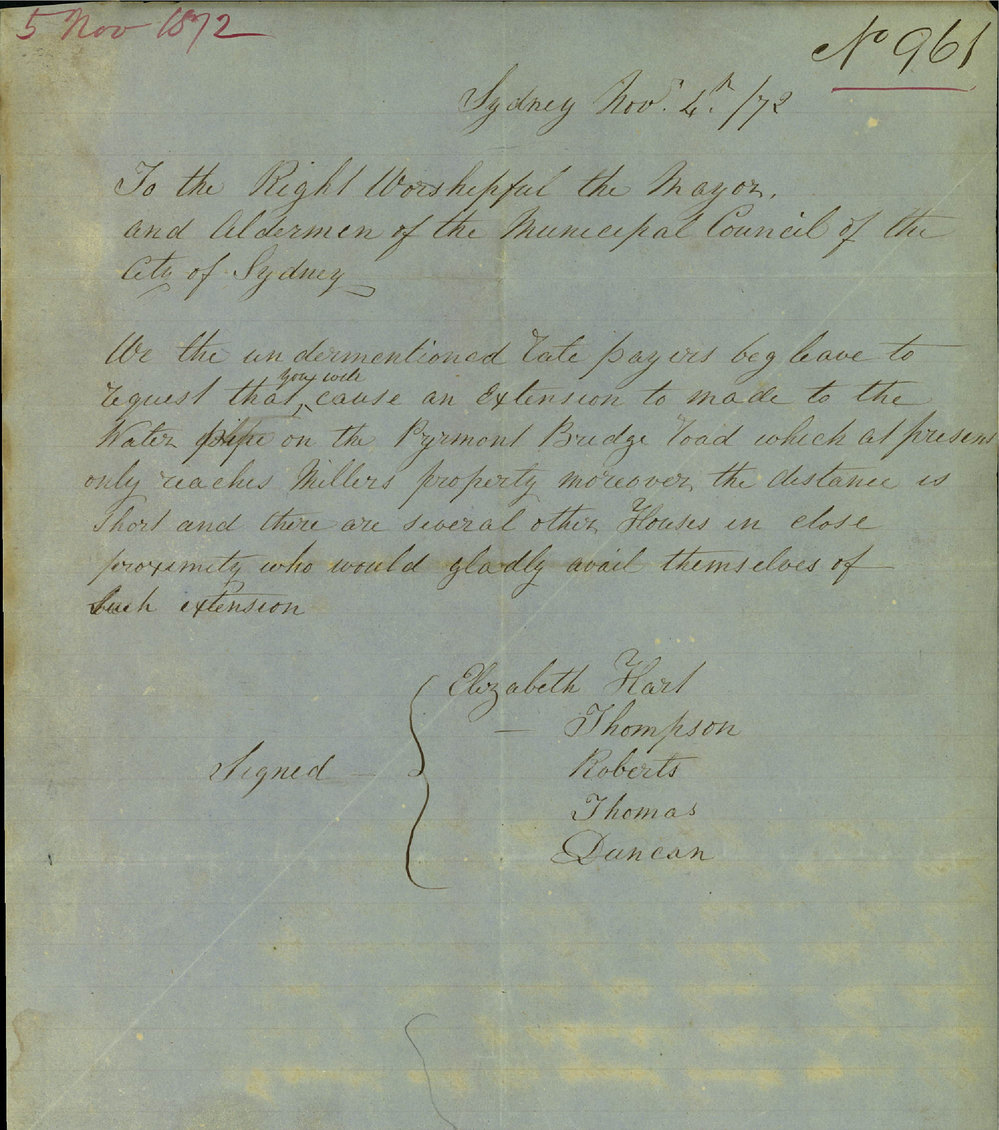 5 Nov 1872
No 961
Sydney Novr. 4th. /72
To the Right Worshipful the Mayor,
and Aldermen of the Municipal Council of the
City of Sydney
We the undermentioned rate payers beg leave to
you will
request that cause an Extension to made to the
Water pipe on the Pyrmont Bridge road which at present
only reaches Millers property moreover the distance is
Short and there are several other Houses in close
proximity who would gladly avail themselves of
Such extension
Elizabeth Hart
— Thompson
Signed — Roberts
Thomas
Duncan